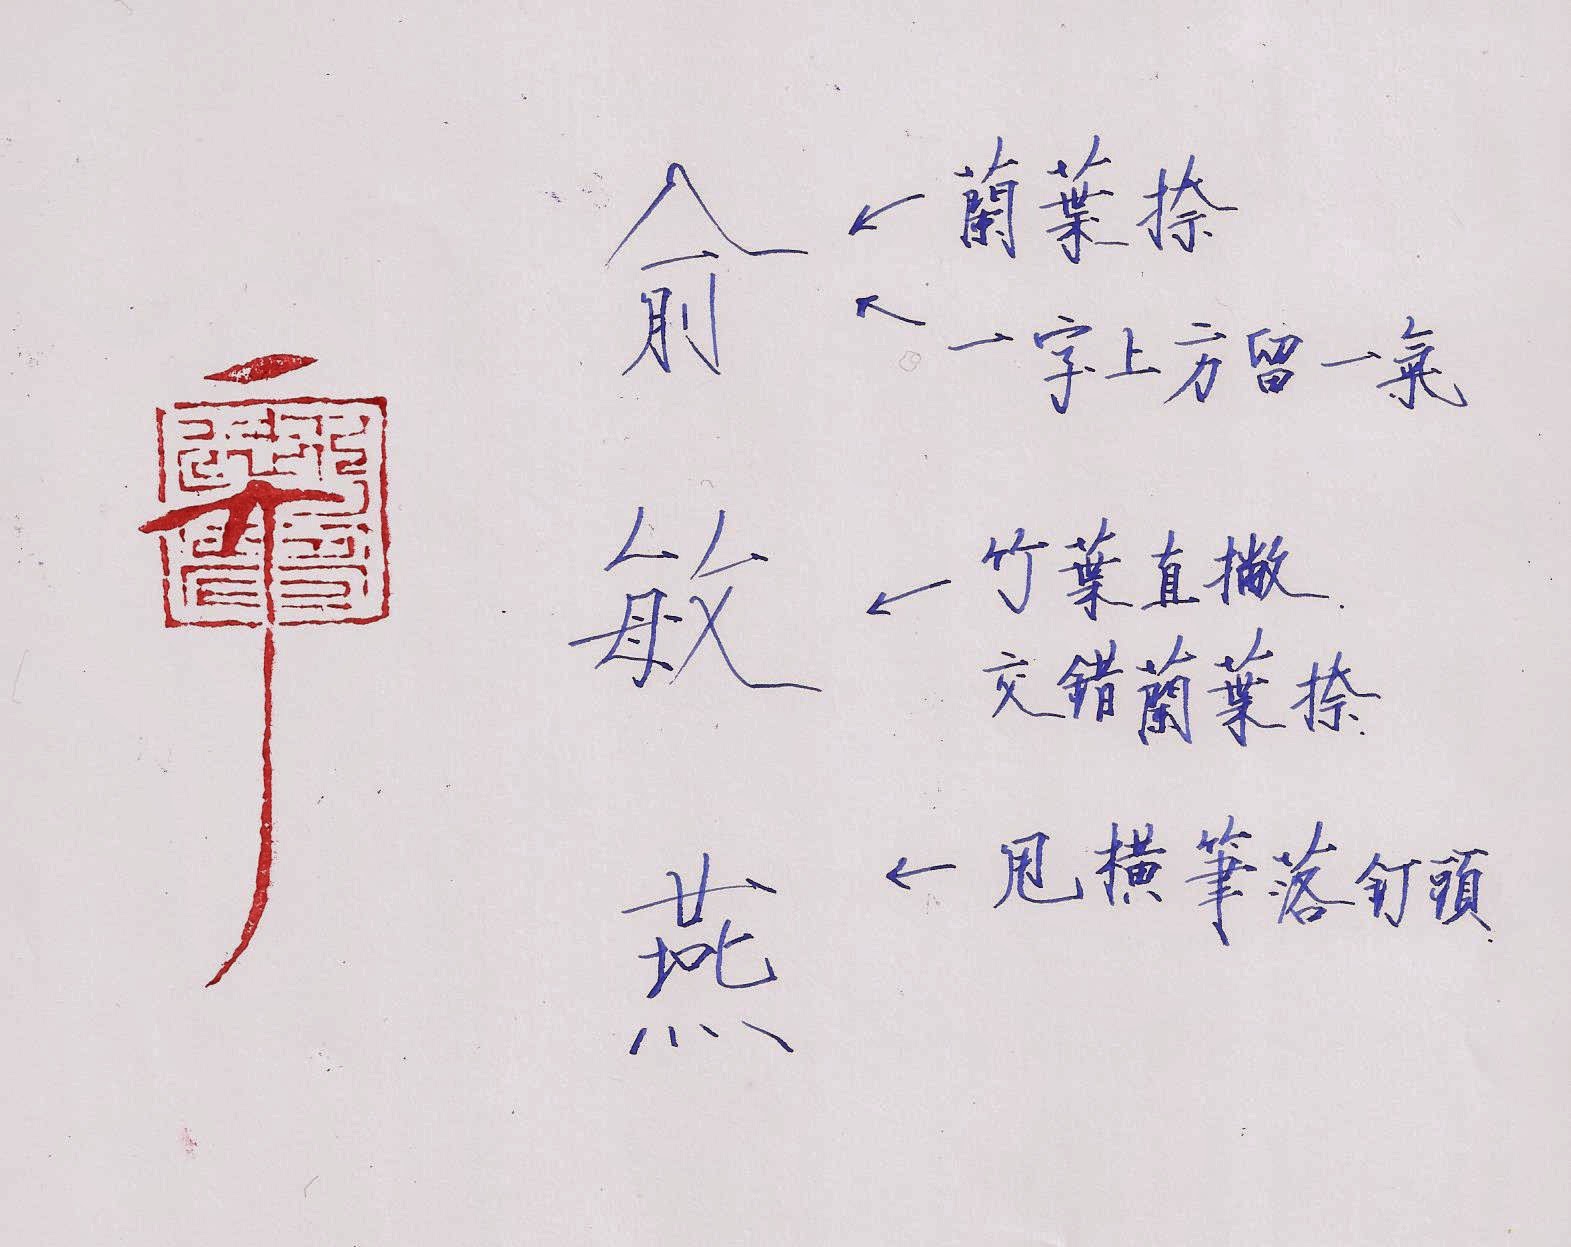 俞 ← 蘭葉捺
↖ 一字上方留一氣
敏 ← 竹葉直撇
交錯蘭葉捺
燕 ← 甩橫筆落釘頭